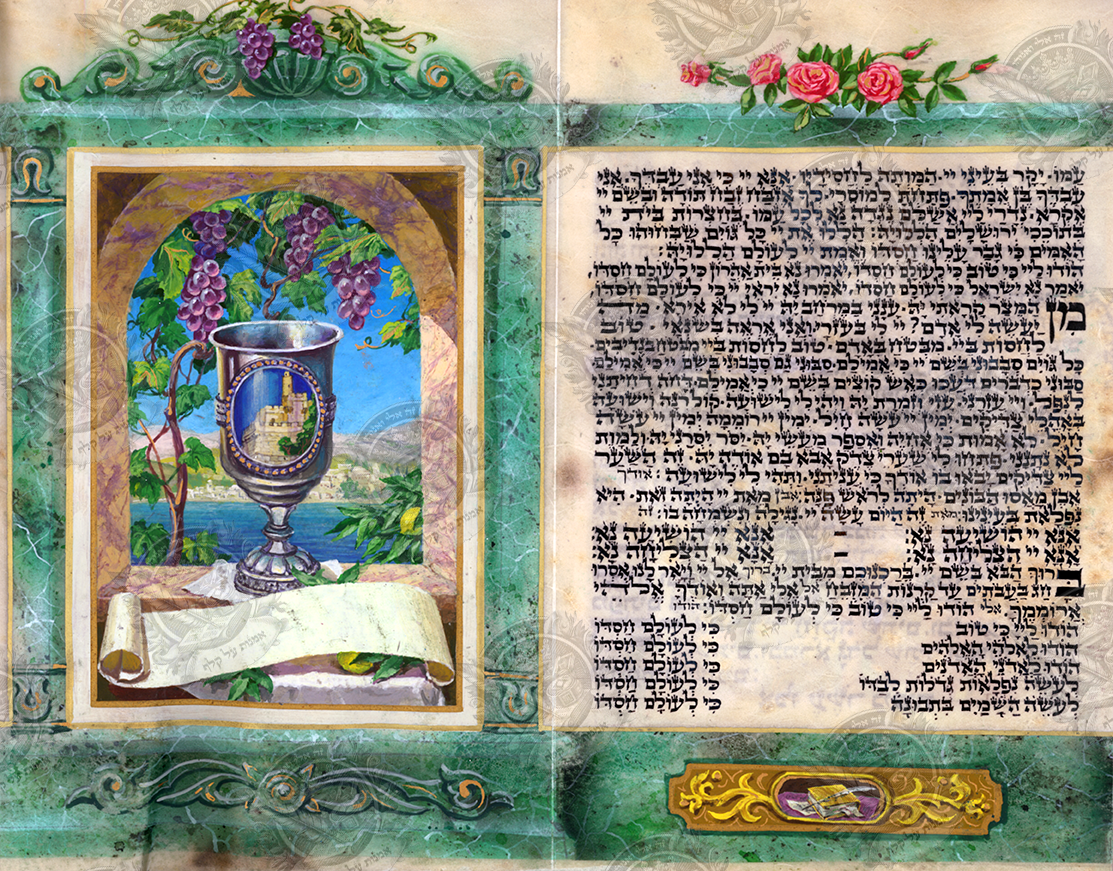 עַמּוֹ. יָקָר בְּעֵינֵי יְיָ הַמָּוְתָה לַחֲסִידָיו. אָנָּא יְיָ כִּי אֲנִי עַבְדֶּךָ. אֲנִי
עַבְדְּךָ בֶּן אֲמָתֶךָ. פִּתַּחְתָּ לְמוֹסֵרָי. לְךָ אֶזְבַּח זֶבַח תּוֹדָה וּבְשֵׁם יְיָ
אֶקְרָא. נְדָרַי לַיְיָ אֲשַׁלֵּם נֶגְדָה נָּא לְכָל עַמּוֹ. בְּחַצְרוֹת בֵּית יְיָ
בְּתוֹכֵכִי יְרוּשָׁלַיִם הַלְלוּיָהּ: הַלְלוּ אֶת יְיָ כָּל גּוֹיִם שַׁבְּחוּהוּ כָּל
הָאֻמִּים כִּי גָבַר עָלֵינוּ חַסְדּוֹ וֶאֱמֶת יְיָ לְעוֹלָם הַלְלוּיָהּ:
הוֹדוּ לַייָ כִּי טוֹב כִּי לְעוֹלָם חַסְדּוֹ, יֹאמְרוּ נָא בֵית אַהֲרֹן כִּי לְעוֹלָם חַסְדּוֹ,
יֹאמַר נָא יִשְׂרָאֵל כִּי לְעוֹלָם חַסְדּוֹ, יֹאמְרוּ נָא יִרְאֵי יְיָ כִּי לְעוֹלָם חַסְדּוֹ
מִן הַמֵּצַר קָרָאתִי יָּהּ. עָנָנִי בַמֶּרְחָב יָהּ. יְיָ לִי לֹא אִירָא. מַה
יַּעֲשֶׂה לִי אָדָם? יְיָ לִי בְּעֹזְרָי וַאֲנִי אֶרְאֶה בְשׂנְאָי. טוֹב
לַחֲסוֹת בַּייָ. מִבְּטֹחַ בָּאָדָם. טוֹב לַחֲסוֹת בַּייָ מִבְּטֹחַ בִּנְדִיבִים
כָּל גּוֹיִם סְבָבוּנִי בְּשֵׁם יְיָ כִּי אֲמִילַם. סַבּוּנִי גַם סְבָבוּנִי בְּשֵׁם יְיָ כִּי אֲמִילַם
סַבּוּנִי כִדְבֹרִים דֹּעֲכוּ כְּאֵשׁ קוֹצִים בְּשֵׁם יְיָ כִּי אֲמִילַם. דָּחֹה דְחִיתַנִי
לִנְפֹּל וַייָ עֲזָרָנִי. עָזִּי וְזִמְרָת יָהּ וַיְהִי לִי לִישׁוּעָה. קוֹל רִנָּה וִישׁוּעָה
בְּאָהֳלֵי צַדִּיקִים. יְמִין יְיָ עֹשָׂה חָיִל. יְמִין יְיָ רוֹמֵמָה יְמִין יְיָ עֹשָׂה
חָיִל. לֹא אָמוּת כִּי אֶחְיֶה וַאֲסַפֵּר מַעֲשֵׂי יָהּ. יַסֹּר יִסְּרַנִּי יָּהּ וְלַמָּוֶת
לֹא נְתָנָנִי. פִּתְחוּ לִי שַׁעֲרֵי צֶדֶק אָבֹא בָם אוֹדֶה יָהּ. זֶה הַשַּׁעַר
לַייָ צַדִּיקִים יָבֹאוּ בוֹ אוֹדְךָ כִּי עֲנִיתָנִי. וַתְּהִי לִי לִישׁוּעָה: אודך
אֶבֶן מָאֲסוּ הַבּוֹנִים. הָיְתָה לְרֹאשׁ פִּנָּה: אבן מֵאֵת יְיָ הָיְתָה זֹּאת. הִיא
נִפְלָאת בְּעֵינֵינוּ: מאת זֶה הַיּוֹם עָשָׂה יְיָ. נָגִילָה וְנִשְׂמְחָה בוֹ: זה
אָנָּא יְיָ הוֹשִׁיעָה נָּא אָנָּא יְיָ הוֹשִׁיעָה נָּא
אָנָּא יְיָ הַצְלִיחָה נָּא אָנָּא יְיָ הַצְלִיחָה נָּא
בָּרוּךְ הַבָּא בְּשֵׁם יְיָ. בֵּרַכְנוּכֶם מִבֵּית יְיָ: ברוך אֵל יְיָ וַיָּאֶר לָנוּ אִסְרוּ
חַג בַּעֲבֹתִים עַד קַרְנוֹת הַמִּזְבֵּחַ: אל אֵלִי אַתָּה וְאוֹדֶךָּ אֱלֹהַי
אֲרוֹמְמֶךָּ. אלי הוֹדוּ לַייָ כִּי טוֹב כִּי לְעוֹלָם חַסְדּוֹ: הודו
הוֹדוּ לַייָ כִּי טוֹב כִּי לְעוֹלָם חַסְדּוֹ
הוֹדוּ לֵאלֹהֵי הָאֱלֹהִים כִּי לְעוֹלָם חַסְדּוֹ
הוֹדוּ לַאֲדֹנֵי הָאֲדֹנִים כִּי לְעוֹלָם חַסְדּוֹ
לְעֹשֵׂה נִפְלָאוֹת גְּדֹלוֹת לְבַדּוֹ כִּי לְעוֹלָם חַסְדּוֹ
לְעֹשֵׂה הַשָּׁמַיִם בִּתְבוּנָה כִּי לְעוֹלָם חַסְדּוֹ
אמנות על קלף